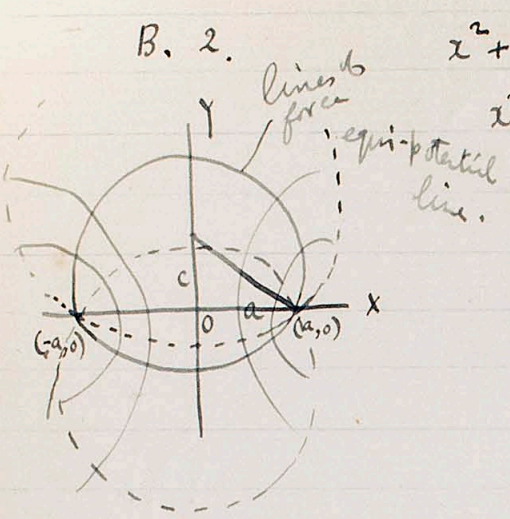 B. 2.
x² +
x
lines of
force
equi-potential
line.
Y
C
a
X
O
(-a,0)
(a,0)